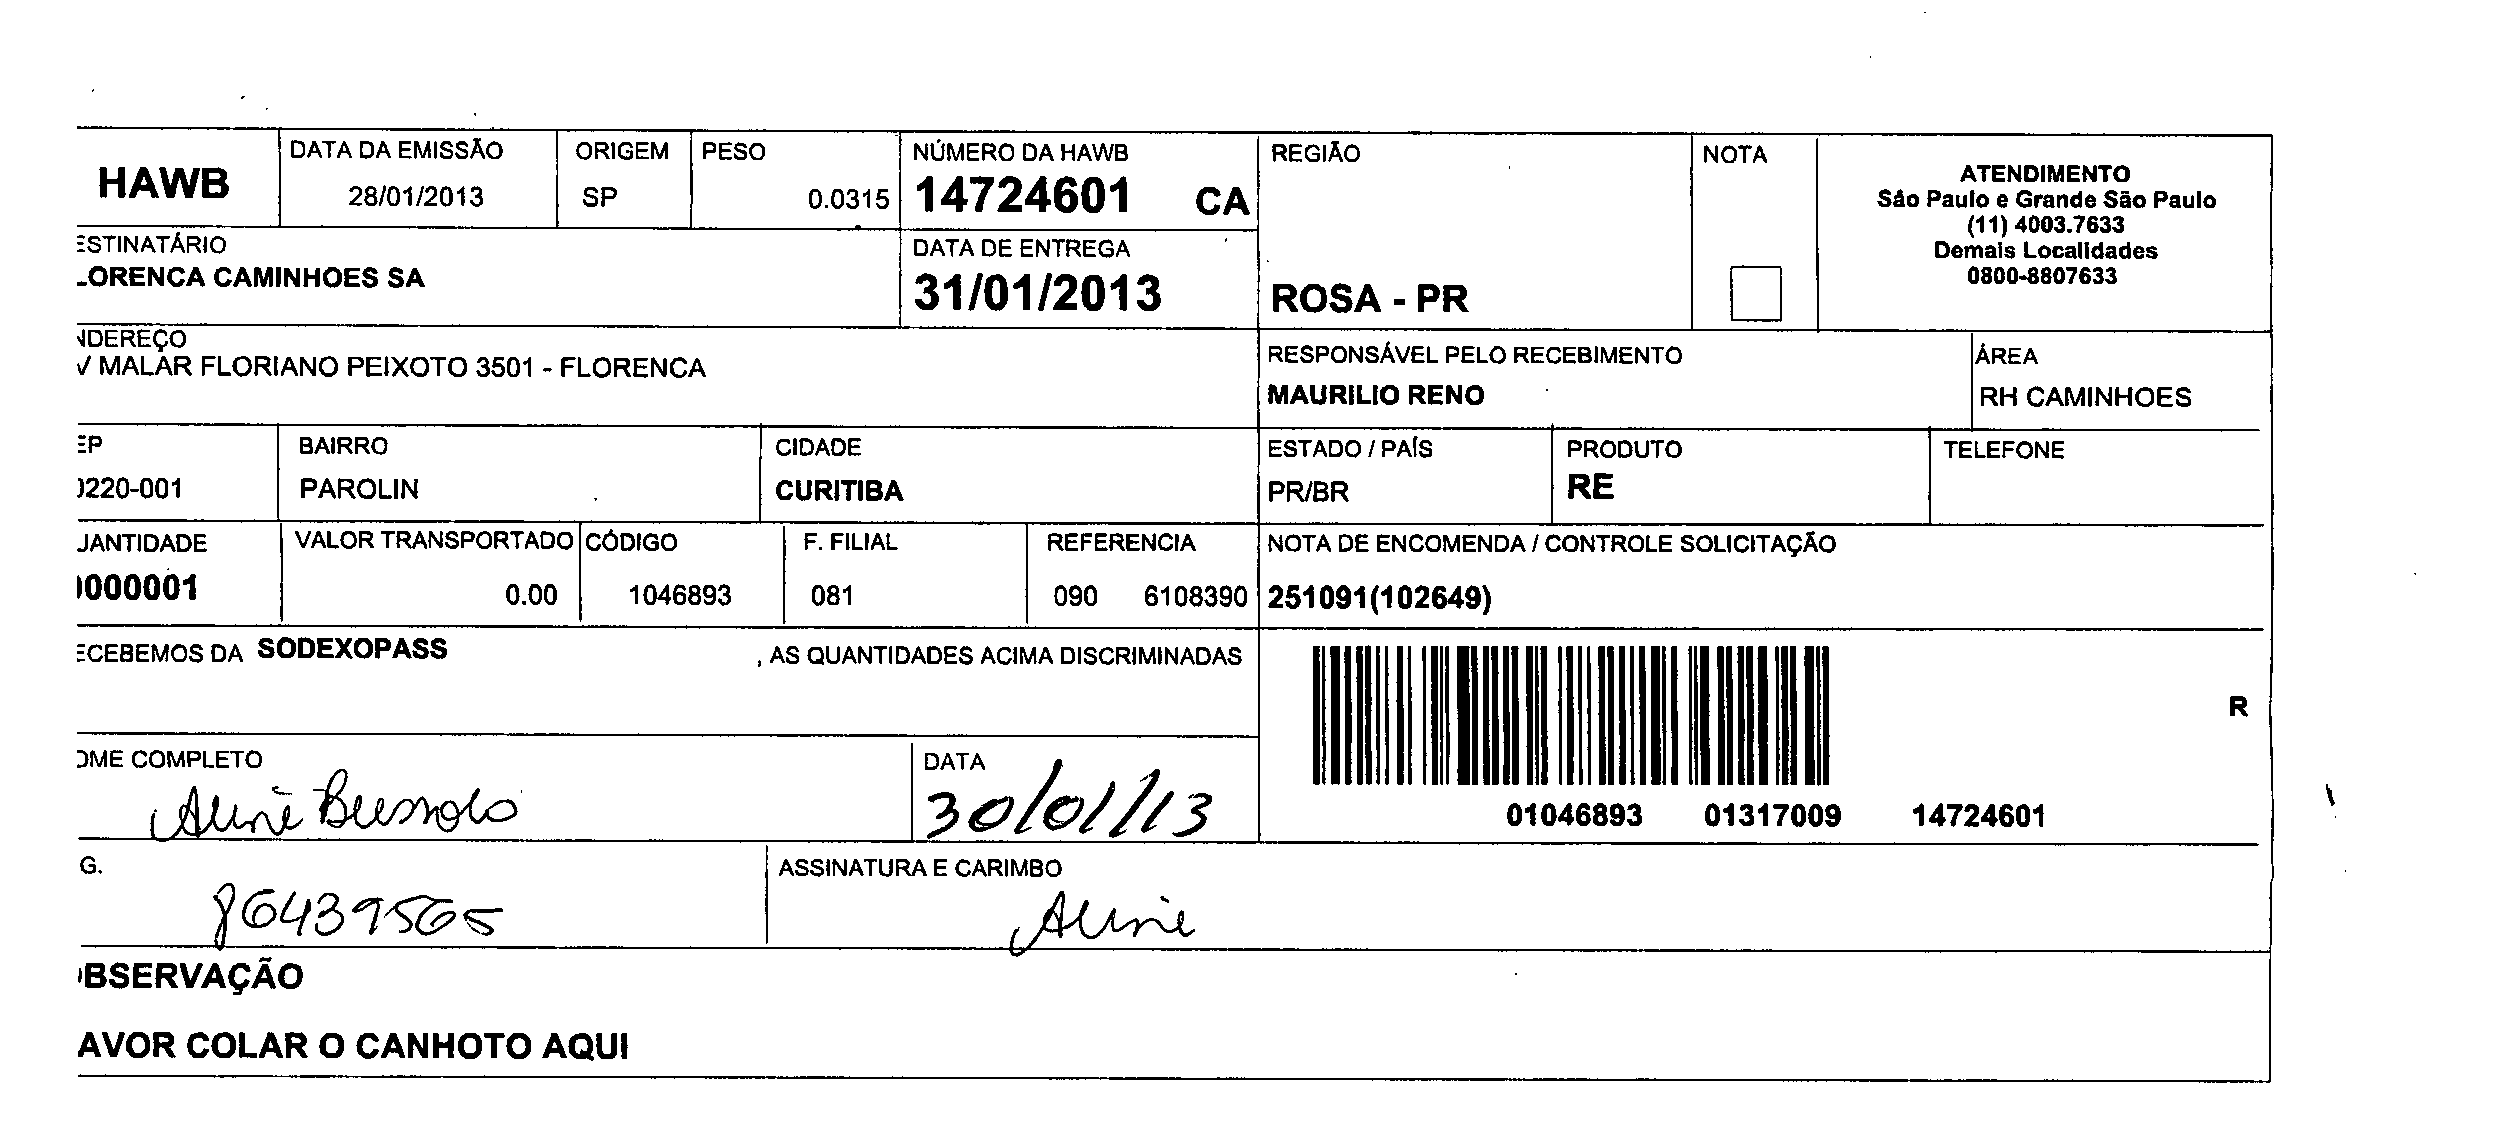 HAWB
DATA DA EMISSÃO
28/01/2013
ORIGEM
SP
PESO
0.0315
NÚMERO DA HAWB
14724601 CA
REGIÃO
ROSA - PR
NOTA
ATENDIMENTO
São Paulo e Grande São Paulo
(11) 4003.7633
Demais Localidades
0800-8807633
ESTINATÁRIO
LORENCA CAMINHOES SA
DATA DE ENTREGA
31/01/2013
NDEREÇO
V MALAR FLORIANO PEIXOTO 3501 - FLORENCA
RESPONSÁVEL PELO RECEBIMENTO
MAURILIO RENO
ÁREA
RH CAMINHOES
EP
0220-001
BAIRRO
PAROLIN
CIDADE
CURITIBA
ESTADO / PAÍS
PR/BR
PRODUTO
RE
TELEFONE
UANTIDADE
0000001
VALOR TRANSPORTADO
0.00
CÓDIGO
1046893
F. FILIAL
081
REFERENCIA
090 6108390
NOTA DE ENCOMENDA / CONTROLE SOLICITAÇÃO
251091(102649)
ECEBEMOS DA SODEXOPASS , AS QUANTIDADES ACIMA DISCRIMINADAS
R
01046893 01317009 14724601
OME COMPLETO
Aline
DATA
30/01/13
G.
86439565
ASSINATURA E CARIMBO
Aline
OBSERVAÇÃO
AVOR COLAR O CANHOTO AQUI